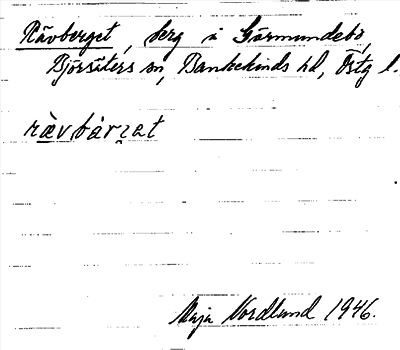 Rävberget, berg i Görmundebo,
Björsäters sn, Bankekinds hd, Östg l.
rävbärꞬat
Maja Nordlund 1946.